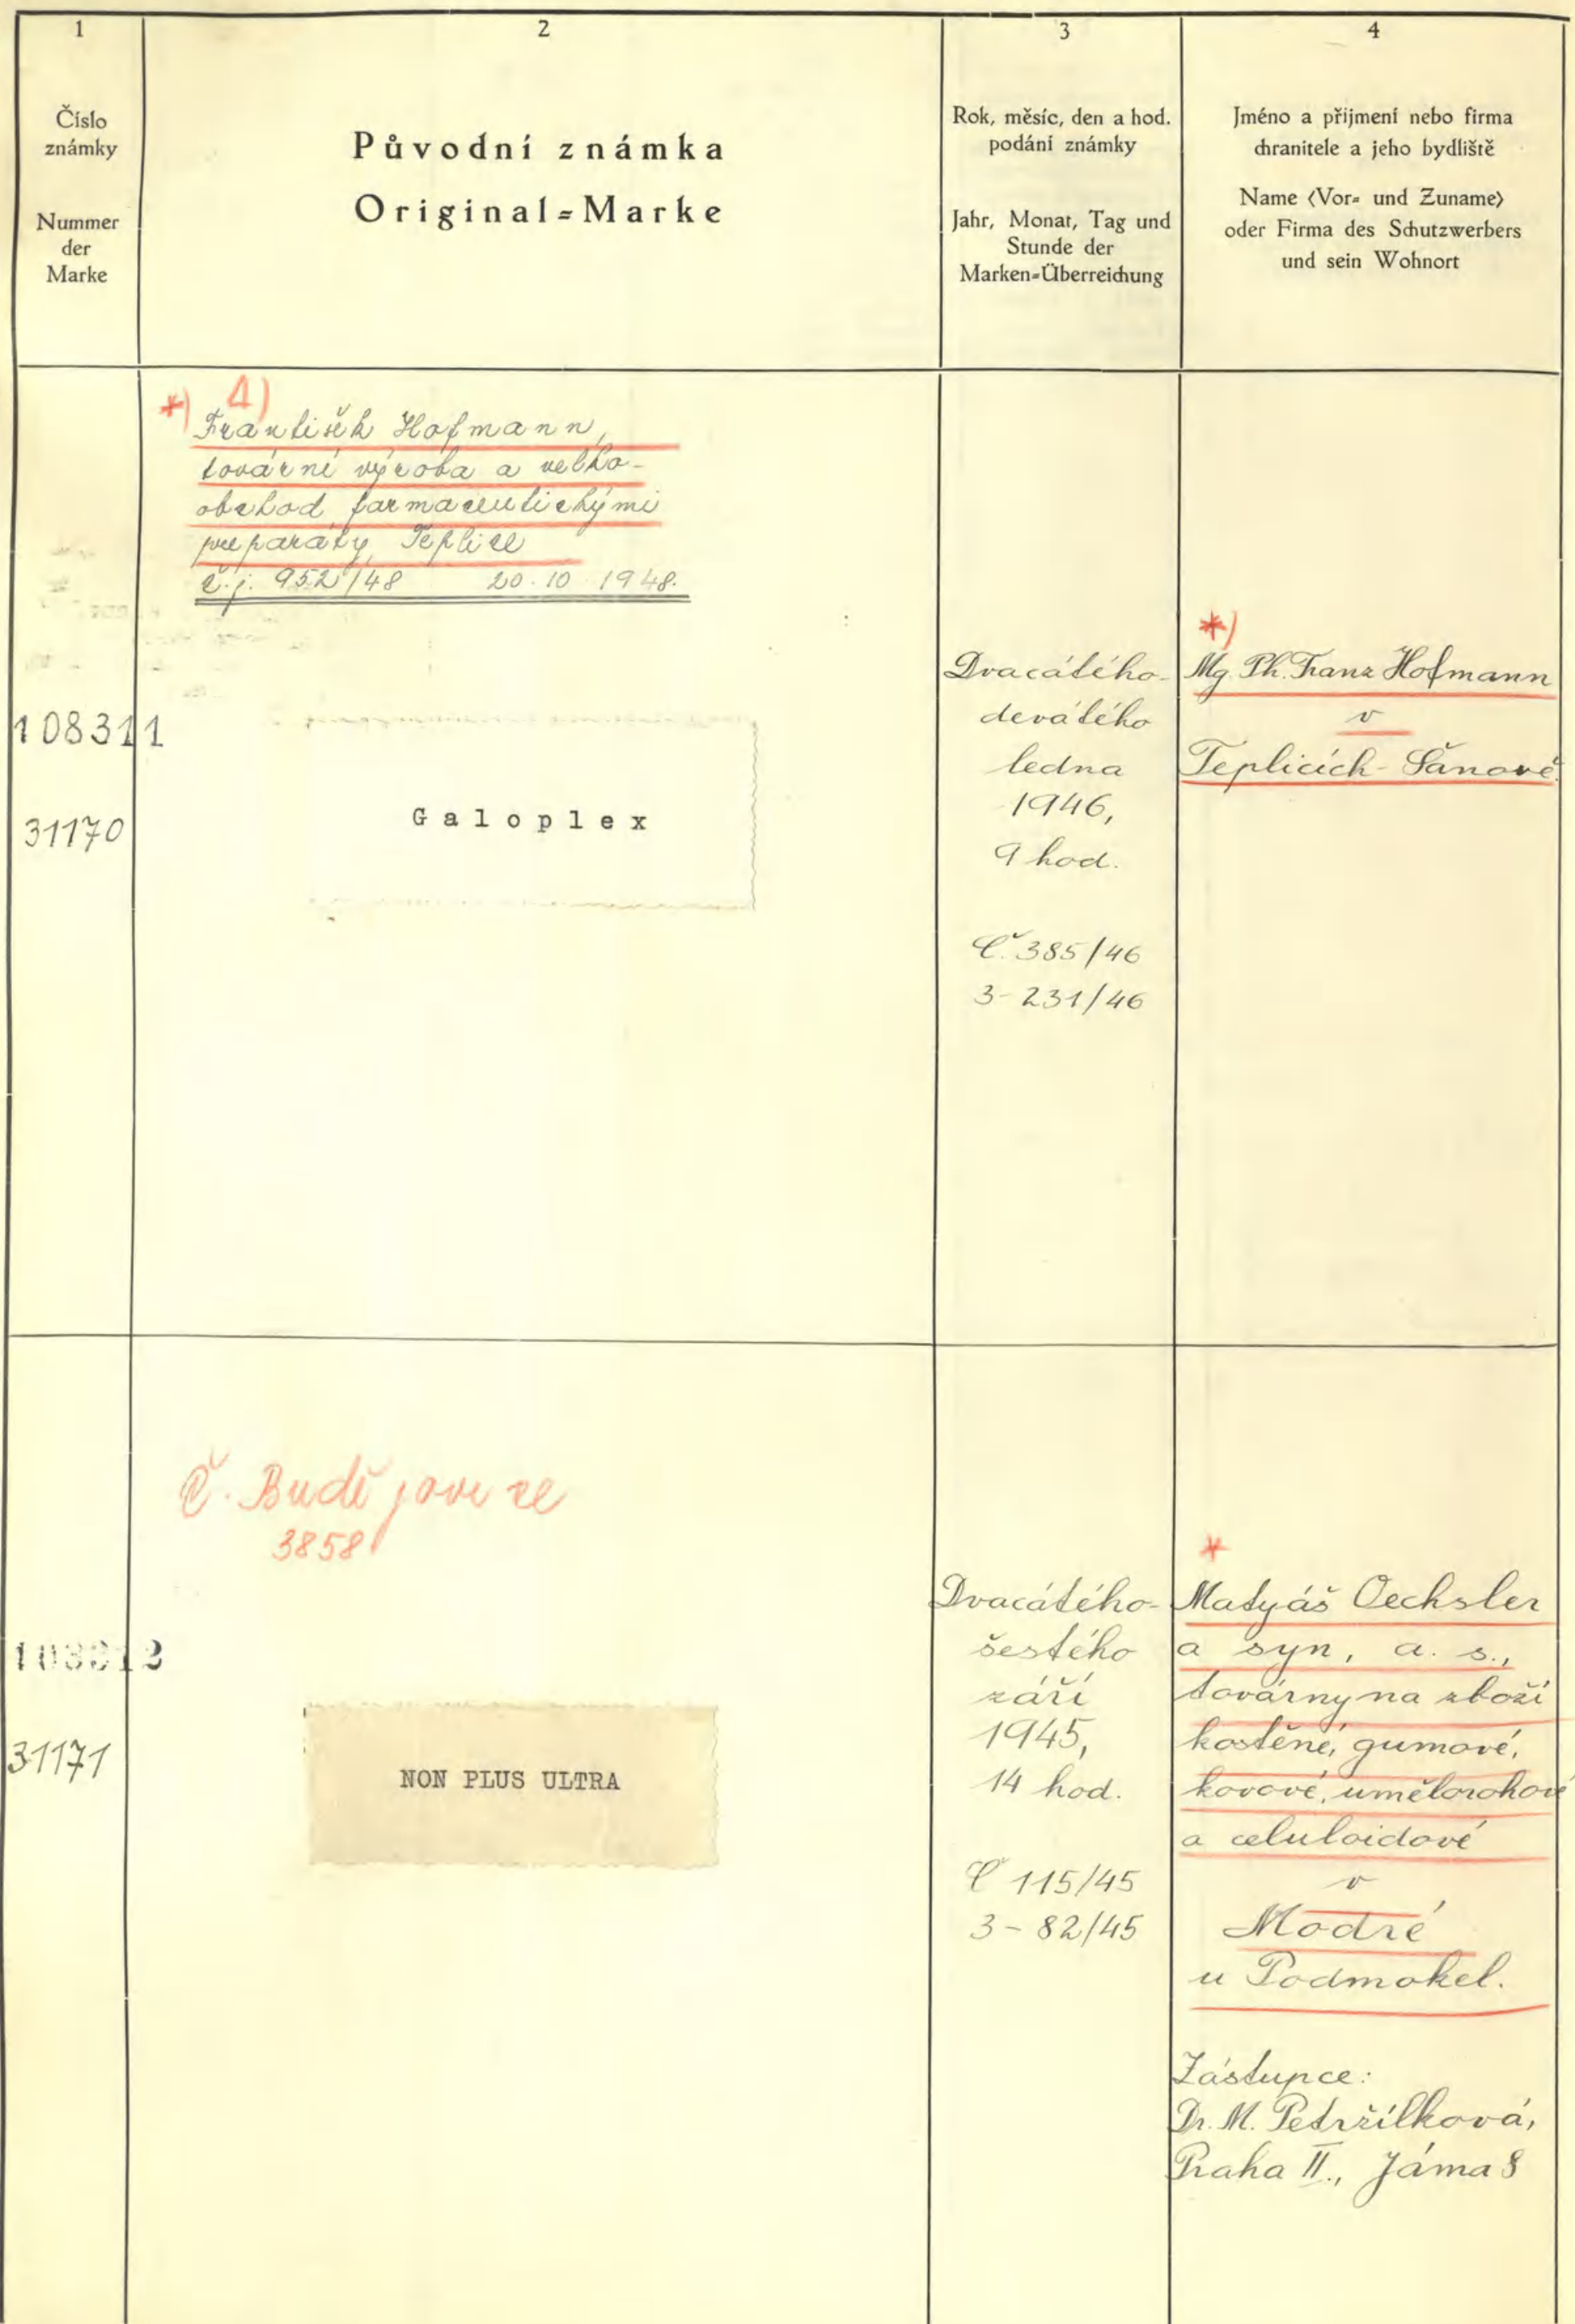 1
2
3
4
Číslo
známky
Nummer
der
Marke
Původní známka
Original=Marke
Rok, měsíc, den a hod.
podání známky
Jahr, Monat, Tag und
Stunde der
Marken=Überreichung
Jméno a přijmení nebo firma
chranitele a jeho bydliště
Name (Vor= und Zuname)
oder Firma des Schutzwerbers
und sein Wohnort
*) Δ)
František Hofmann,
tovární výroba a velko-
obchod farmaceutickými
preparáty, Teplice
č.j. 952/48 20.10 1948.
108311
31170
Galoplex
Dvacátého-
devátého
ledna
1946,
9 hod.
Č. 385/46
3-231/46
*)
Mg. Ph. Franz Hofmann
v
Teplicích-Šanově
Č. Budějovice
3858
108312
31171
NON PLUS ULTRA
Dvacátého-
šestého
září
1945,
14 hod.
Č 115/45
3-82/45
*
Matyáš Oechsler
a syn, a. s.,
továrny na zboží
kostěné, gumové,
kovové, umělorohové
a celuloidové
v
Modré
u Podmokel.
Zástupce:
Dr. M. Petržílková,
Praha II., Jáma 8